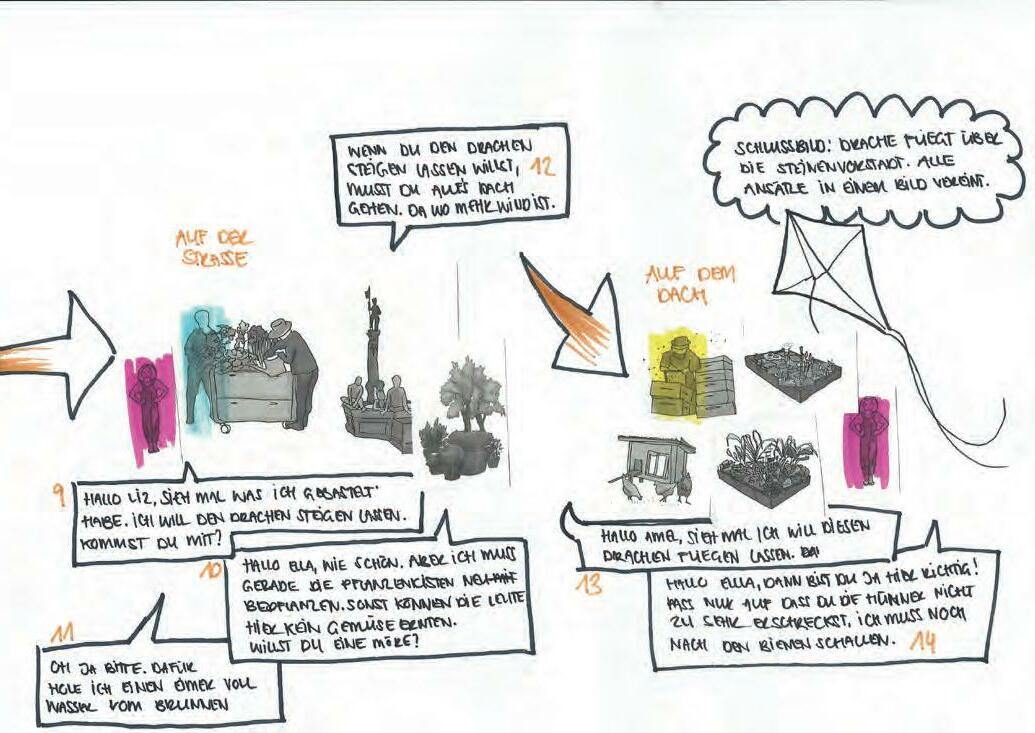 AUF DER
STRASSE
9
HALLO LIZ, SIEH MAL WAS ICH GEBASTELT
HABE. ICH WILL DEN DRACHEN STEIGEN LASSEN.
KOMMST DU MIT?
10
HALLO ELLA, WIE SCHÖN. ABER ICH MUSS
GERADE DIE PFLANZENKISTEN NEU MIT
BEPFLANZEN. SONST KÖNNEN DIE LEUTE
HIER KEIN GEMÜSE ERNTEN.
WILLST DU EINE MÖRE?
11
OH JA BITTE. DAFÜR
HOLE ICH EINEN EIMER VOLL
WASSER VOM BRUNNEN
WENN DU DEN DRACHEN
STEIGEN LASSEN WILLST, 12
MUSST DU AUFS DACH
GEHEN. DA WO MEHR WIND IST.
AUF DEM
DACH
13
HALLO AMEL, SIEH MAL ICH WILL DIESEN
DRACHEN FLIEGEN LASSEN.
HALLO ELLA, DANN BIST DU JA HIER RICHTIG!
PASS NUR AUF DASS DU DIE HÜHNER NICHT
ZU SEHR ERSCHRECKST, ICH MUSS NOCH
NACH DEN BIENEN SCHAUEN. 14
SCHLUSSBILD: DRACHE FLIEGT ÜBER
DIE STEINENVORSTADT. ALLE
ANSÄTZE IN EINEM BILD VEREINT.